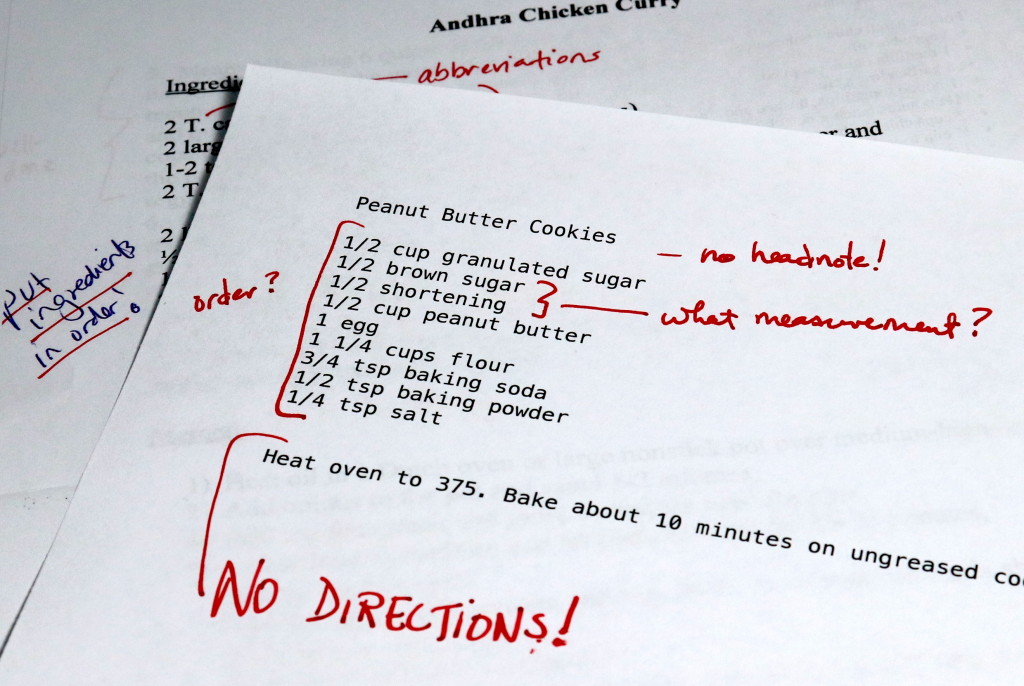 Andhra Chicken Curry
— abbreviations
Ingredi
2 T.
2 larg
1-2 t
2 T.
2
r and
put
ingredients
in order!
Peanut Butter Cookies
— no headnote!
order?
1/2 cup granulated sugar
1/2 brown sugar
1/2 shortening
what measurement?
1/2 cup peanut butter
1 egg
1 1/4 cups flour
3/4 tsp baking soda
1/2 tsp baking powder
1/4 tsp salt
Heat oven to 375. Bake about 10 minutes on ungreased co
NO DIRECTIONS!